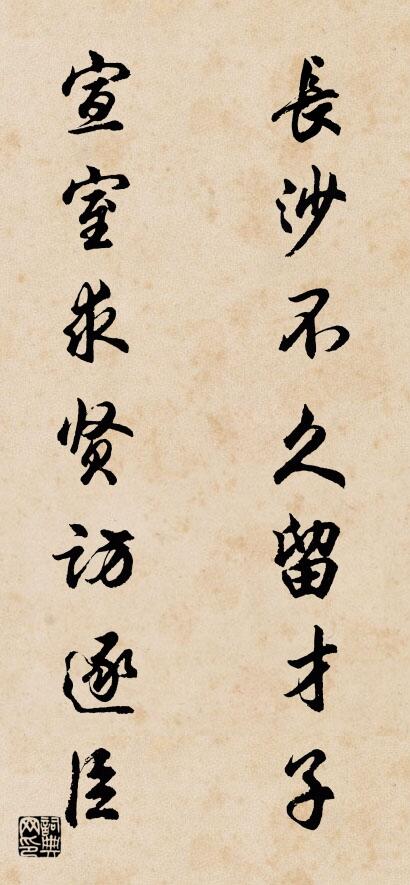 長沙不久留才子
宣室求贤訪逐臣
詞典网印